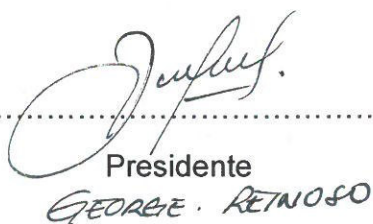 Presidente
GEORGE. REINOSO